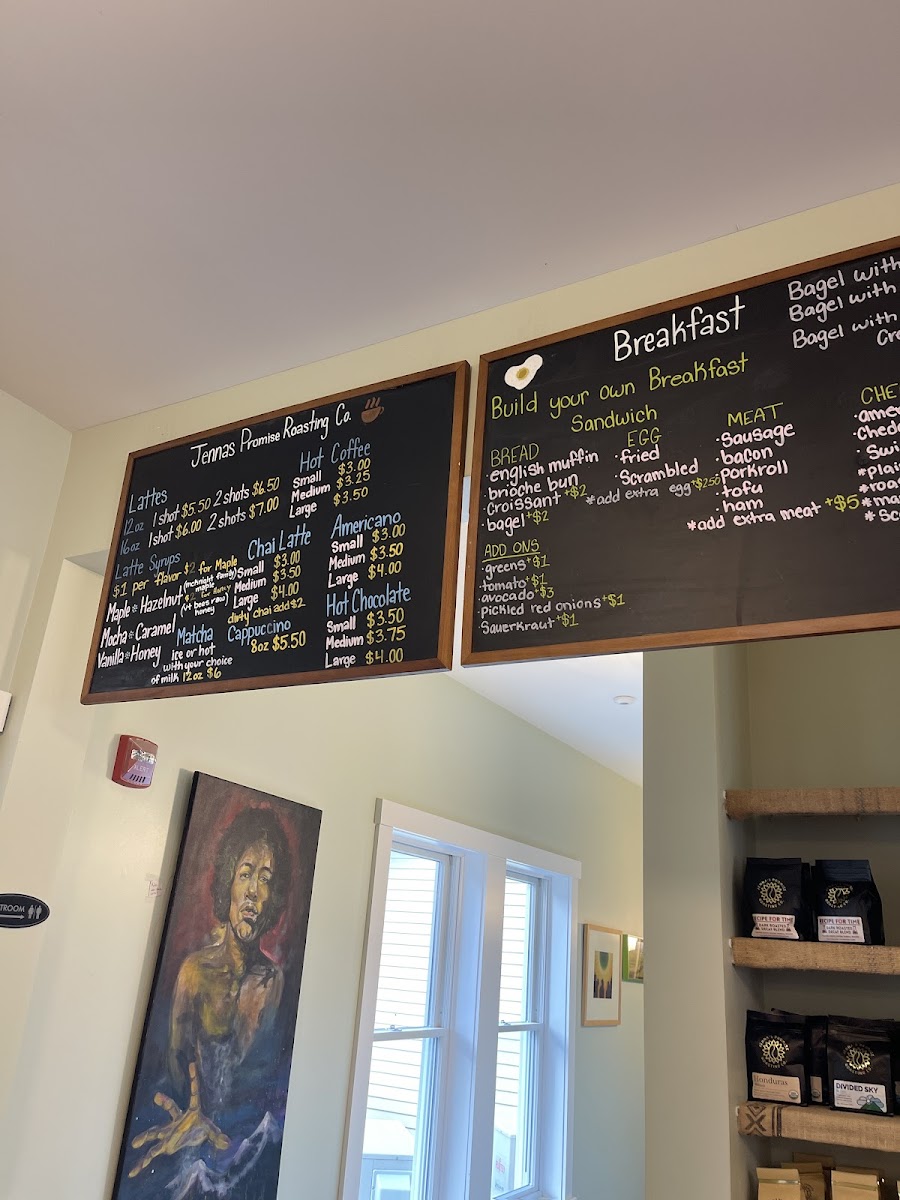 Jennas Promise Roasting Co.
Lattes
12oz 1 shot $5.50 2 shots $6.50
16oz 1 shot $6.00 2 shots $7.00
Latte Syrups
$1 per flavor $2 for Maple
Maple * Hazelnut
(mcknight family maple
(vt bees raw honey
Mocha * Caramel
Vanilla * Honey
Matcha
ice or hot
with your choice
of milk 12oz $6
Chai Latte
Small $3.00
Medium $3.50
Large $4.00
dirty chai add $2
Cappuccino
8oz $5.50
Hot Coffee
Small $3.00
Medium $3.25
Large $3.50
Americano
Small $3.00
Medium $3.50
Large $4.00
Hot Chocolate
Small $3.50
Medium $3.75
Large $4.00
Breakfast
Build your own Breakfast
Sandwich
BREAD
·english muffin
·brioche bun
·croissant +$2
·bagel +$2
EGG
·fried
·Scrambled
*add extra egg +$2.50
MEAT
·sausage
·bacon
·porkroll
·tofu
·ham
*add extra meat +$5
ADD ONS
·greens +$1
·tomato +$1
·avocado +$3
·pickled red onions +$1
·Sauerkraut +$1
Bagel with
Bagel with
Bagel with
RECIPE FOR TIME
DARK ROASTED
DECAF BLEND
Honduras
DIVIDED SKY